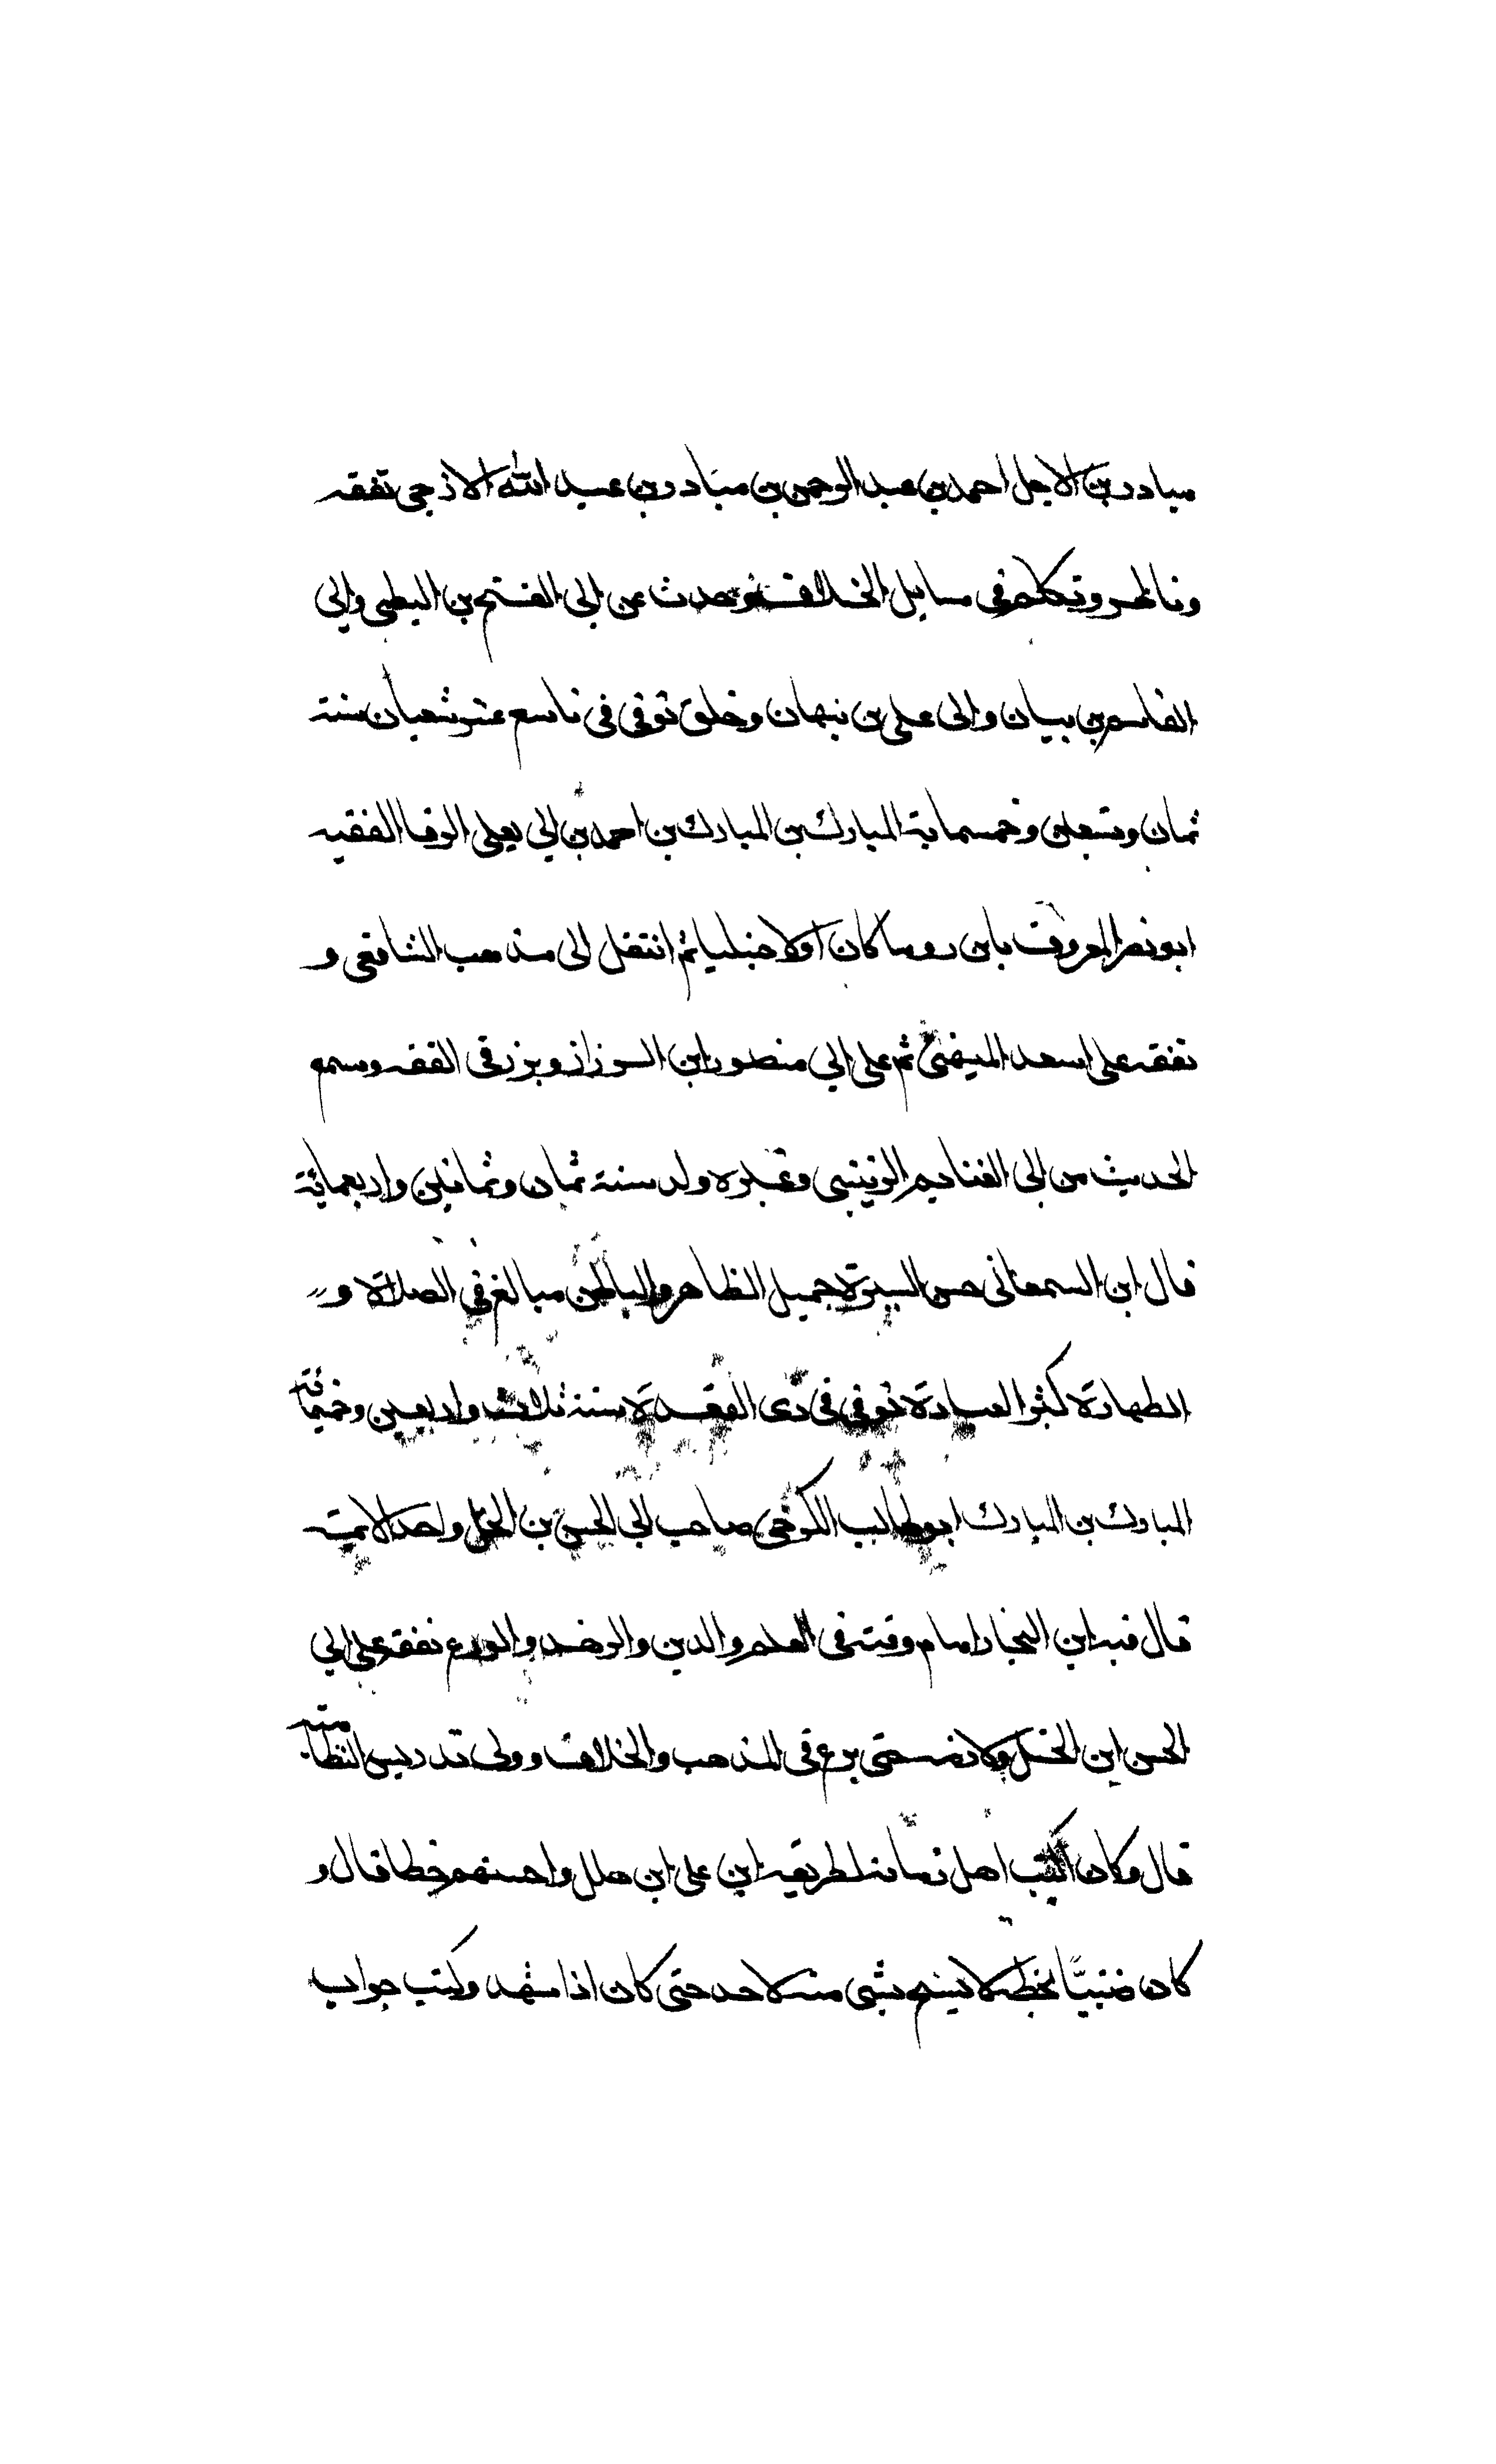 مبادر بن الاجل احمد بن عبد الرحمن بن مبادر بن عبيد الله الازجى تفقه
وناظر وتكلم فى مسايل الخلاف وحدث عن ابى الفتح بن البطى وابى
القاسم بن بيان وابى على بن نبهان وخلق توفى فى تاسع عشر شعبان سنة
ثمان وتسعين وخمسماية المبارك بن المبارك بن احمد بن ابى يعلى الرفا الفقيه
ابو نصر المعروف بابن روما كان اولا حنبليا ثم انتقل الى مذهب الشافعى و
تفقه على اسعد الميهنى ثم على ابى منصور ابن الرزاز وبرز فى الفقه وسمع
الحديث من ابى الغنايم الزينبى وغيره ولد سنة ثمان وثمانين واربعمائة
قال ابن السمعانى حسن السيرة جميل الظاهر والباطن مبالغ فى الصلاة و
الطهارة كثير العبادة توفى فى ذى القعدة سنة ثلاث واربعين وخمسمائة
المبارك بن المبارك ابو طالب الكرخى صاحب ابى الحسن بن الخل واحد الايمة
قال فيه ابن النجار امام وقته فى العلم والدين والزهد والورع تفقه على ابى
الحسن ابن الخل ولازمه حتى برع فى المذهب والخلاف وولى تدريس النظامية
قال وكان اكتب اهل زمانه لطريقه ابن على ابن هلل واحسنهم خطا قال و
كان ضنينًا بخطه لا يسمح بشى منه لاحد حتى كان اذا شهد وكتب جواب